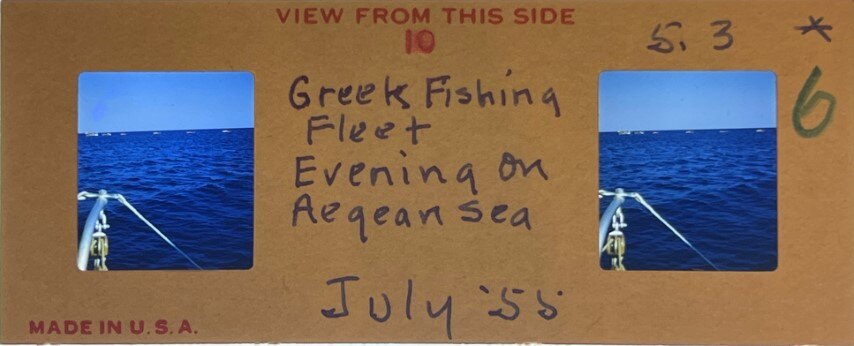 VIEW FROM THIS SIDE
10
5.3 *
6
Greek Fishing
Fleet
Evening on
Aegean Sea
July '55
MADE IN U.S.A.